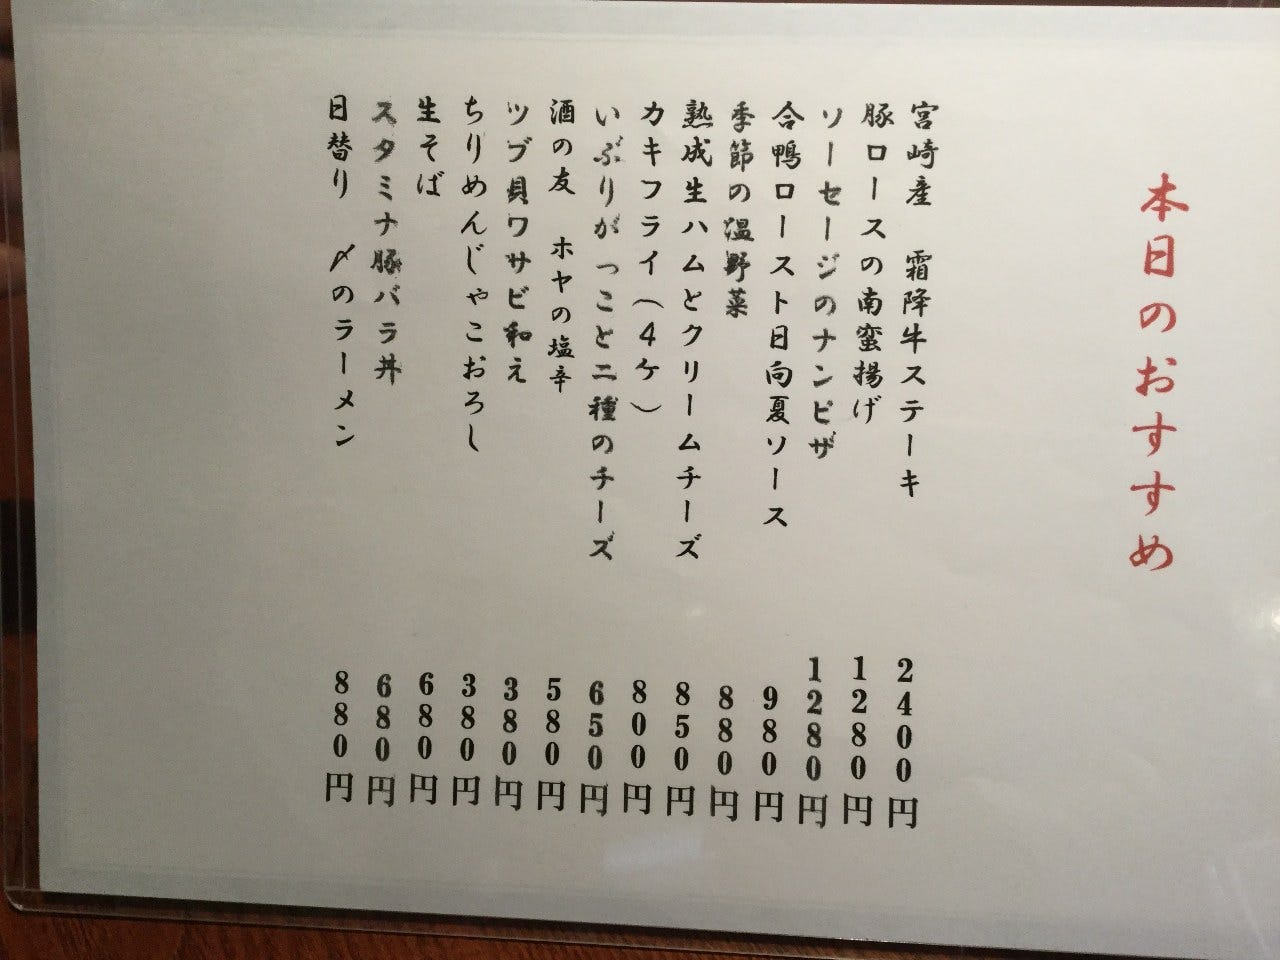 本日のおすすめ
宮崎産 霜降牛ステーキ 2400円
豚ロースの南蛮揚げ 1280円
ソーセージのナンピザ 1280円
合鴨ロースト日向夏ソース 980円
季節の温野菜 880円
熟成生ハムとクリームチーズ 850円
カキフライ（4ケ） 800円
いぶりがっこと二種のチーズ 650円
酒の友 ホヤの塩辛 580円
ツブ貝ワサビ和え 380円
ちりめんじゃこおろし 380円
生そば 680円
スタミナ豚バラ丼 680円
日替り 〆のラーメン 880円